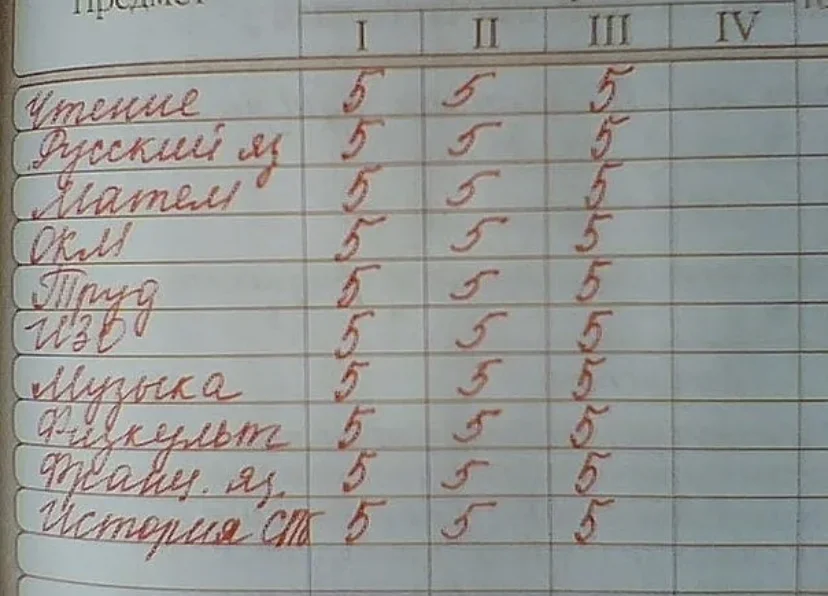 Предмет
I II III IV
Чтение 5 5 5
Русский яз 5 5 5
Матем 5 5 5
ОКМ 5 5 5
Труд 5 5 5
ИЗО 5 5 5
Музыка 5 5 5
Физкульт 5 5 5
Франц. яз. 5 5 5
История СПб 5 5 5